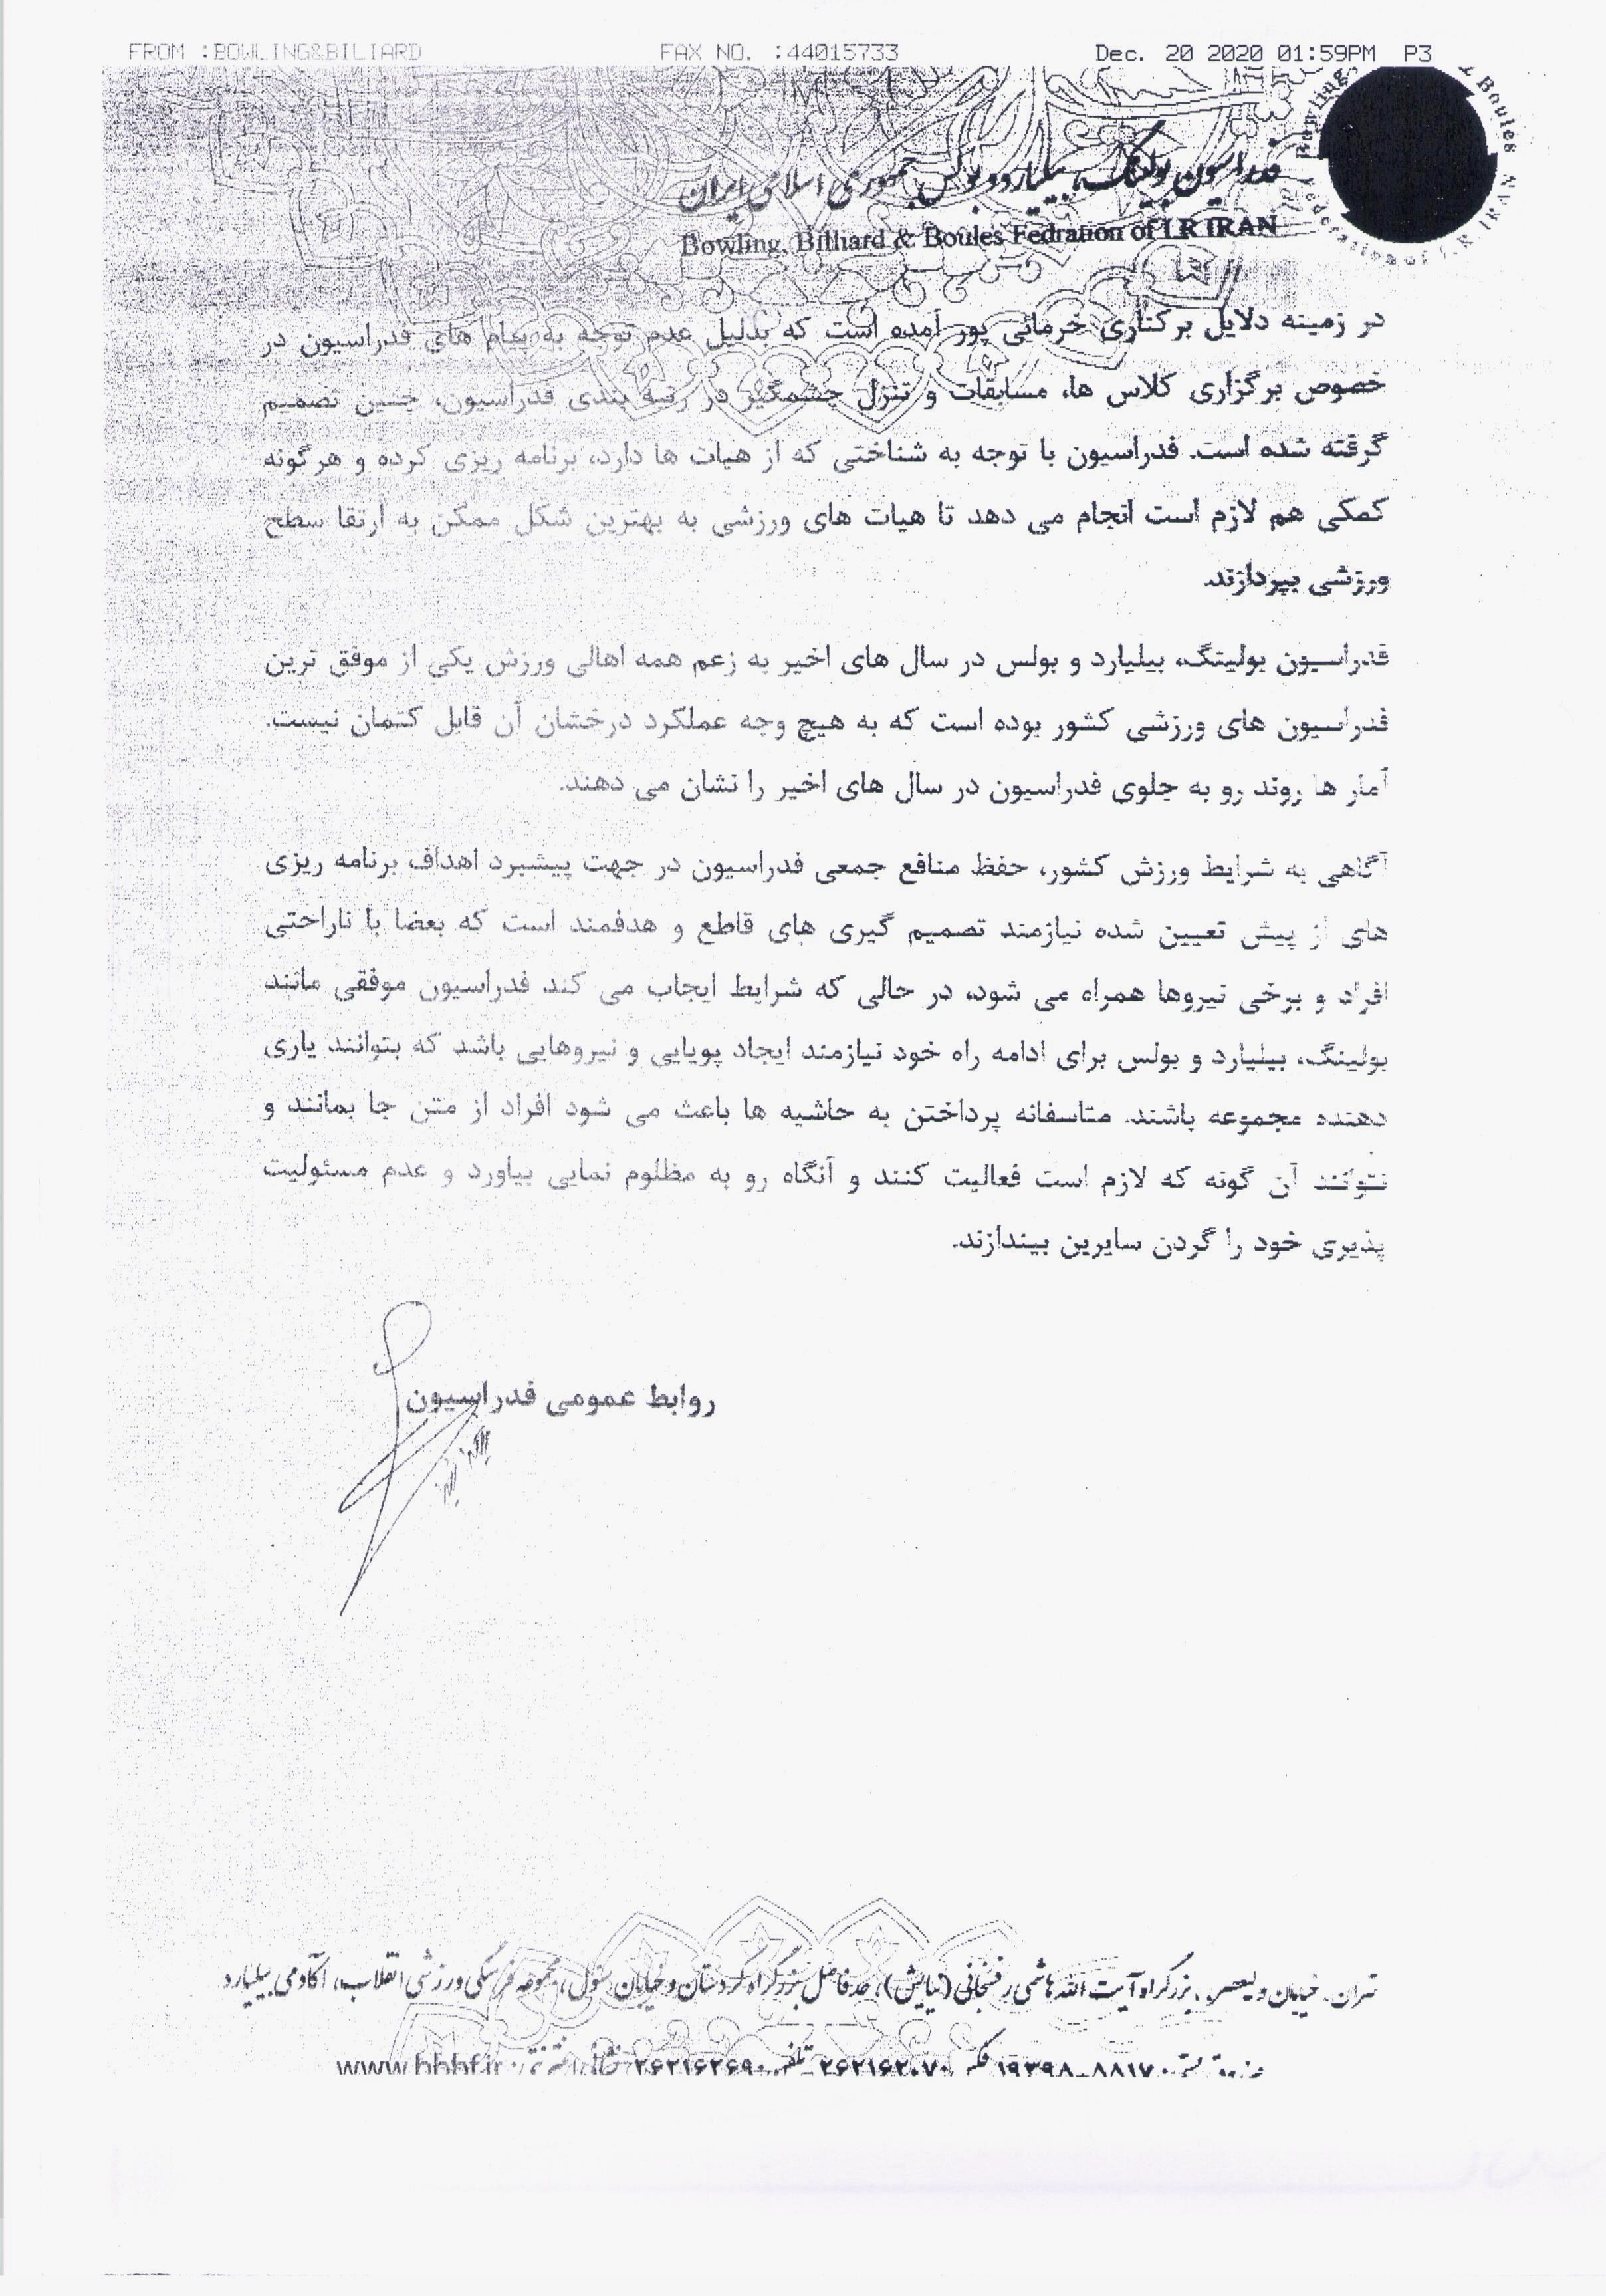 FROM :BOWLING&BILIARD FAX NO. :44015733 Dec. 20 2020 01:59PM P3
Bowling Boules Federation of I.R IRAN
فدراسیون بولینگ، بیلیارد و بولس جمهوری اسلامی ایران
Bowling, Billiard & Boules Fedration of I R IRAN
در زمینه دلایل برکناری خرمائی پور آمده است که بدلیل عدم توجه به پیام های فدراسیون در
خصوص برگزاری کلاس ها، مسابقات و تنزل چشمگیر در رتبه بندی فدراسیون، چنین تصمیم
گرفته شده است. فدراسیون با توجه به شناختی که از هیات ها دارد، برنامه ریزی کرده و هرگونه
کمکی هم لازم است انجام می دهد تا هیات های ورزشی به بهترین شکل ممکن به ارتقا سطح
ورزشی بپردازند.
فدراسیون بولینگ، بیلیارد و بولس در سال های اخیر به زعم همه اهالی ورزش یکی از موفق ترین
فدراسیون های ورزشی کشور بوده است که به هیچ وجه عملکرد درخشان آن قابل کتمان نیست.
آمار ها روند رو به جلوی فدراسیون در سال های اخیر را نشان می دهند.
آگاهی به شرایط ورزش کشور، حفظ منافع جمعی فدراسیون در جهت پیشبرد اهداف برنامه ریزی
های از پیش تعیین شده نیازمند تصمیم گیری های قاطع و هدفمند است که بعضا با ناراحتی
افراد و برخی نیروها همراه می شود، در حالی که شرایط ایجاب می کند فدراسیون موفقی مانند
بولینگ، بیلیارد و بولس برای ادامه راه خود نیازمند ایجاد پویایی و نیروهایی باشد که بتوانند یاری
دهنده مجموعه باشند. متاسفانه پرداختن به حاشیه ها باعث می شود افراد از متن جا بمانند و
نتوکند آن گونه که لازم است فعالیت کنند و آنگاه رو به مظلوم نمایی بیاورد و عدم مسئولیت
پذیری خود را گردن سایرین بیندازند.
روابط عمومی فدراسیون
تهران، خیابان ولیعصر، بزرگراه آیت الله هاشمی رفسنجانی (نیایش)، حد فاصل بزرگراه کردستان و خیابان سئول، مجموعه فرهنگی ورزشی انقلاب، آکادمی بیلیارد
صندوق پستی: ۱۹۳۹۸-۸۸۱۷ فکس ۲۶۲۱۶۲۰۷۰ تلفن ۲۶۲۱۶۲۶۹۰ www.bbbf.ir